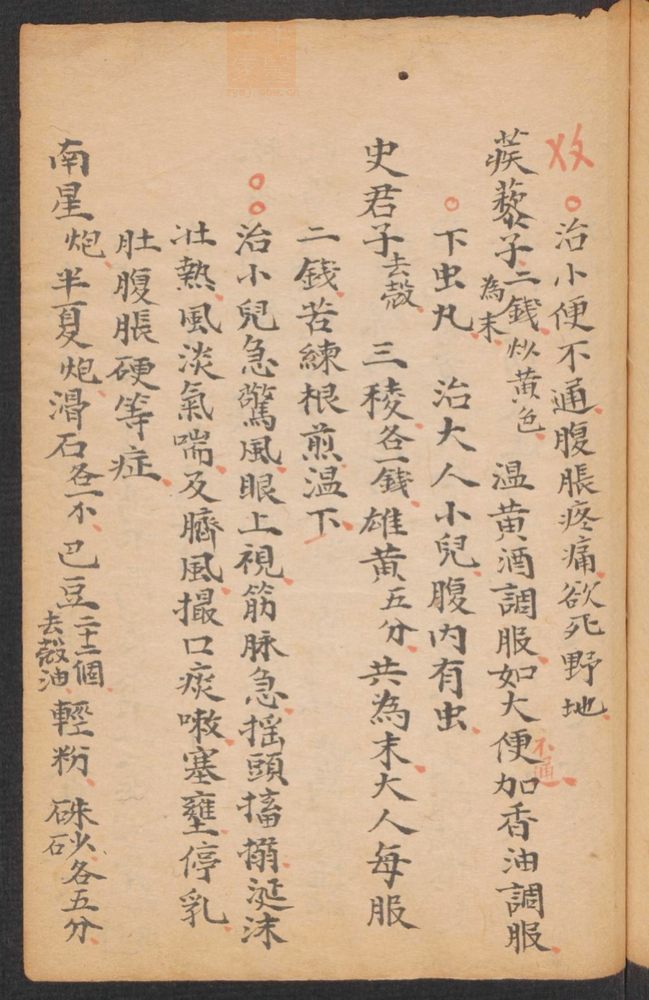 治小便不通腹脹疼痛欲死野地
蒺藜子二錢炒黄色為末 温黄酒調服如大便不通加香油調服
下虫丸 治大人小兒腹内有虫
史君子去殻 三稜各一錢雄黄五分共為末大人每服
二錢苦練根煎温下
治小兒急驚風眼上視筋脉急揺頭搐搦涎沫
壯熱風淡氣喘及臍風撮口痰嗽塞壅停乳
肚腹脹硬等症
南星炮半夏炮滑石各一个巴豆二十二個去殻油輕粉 硃砂各五分